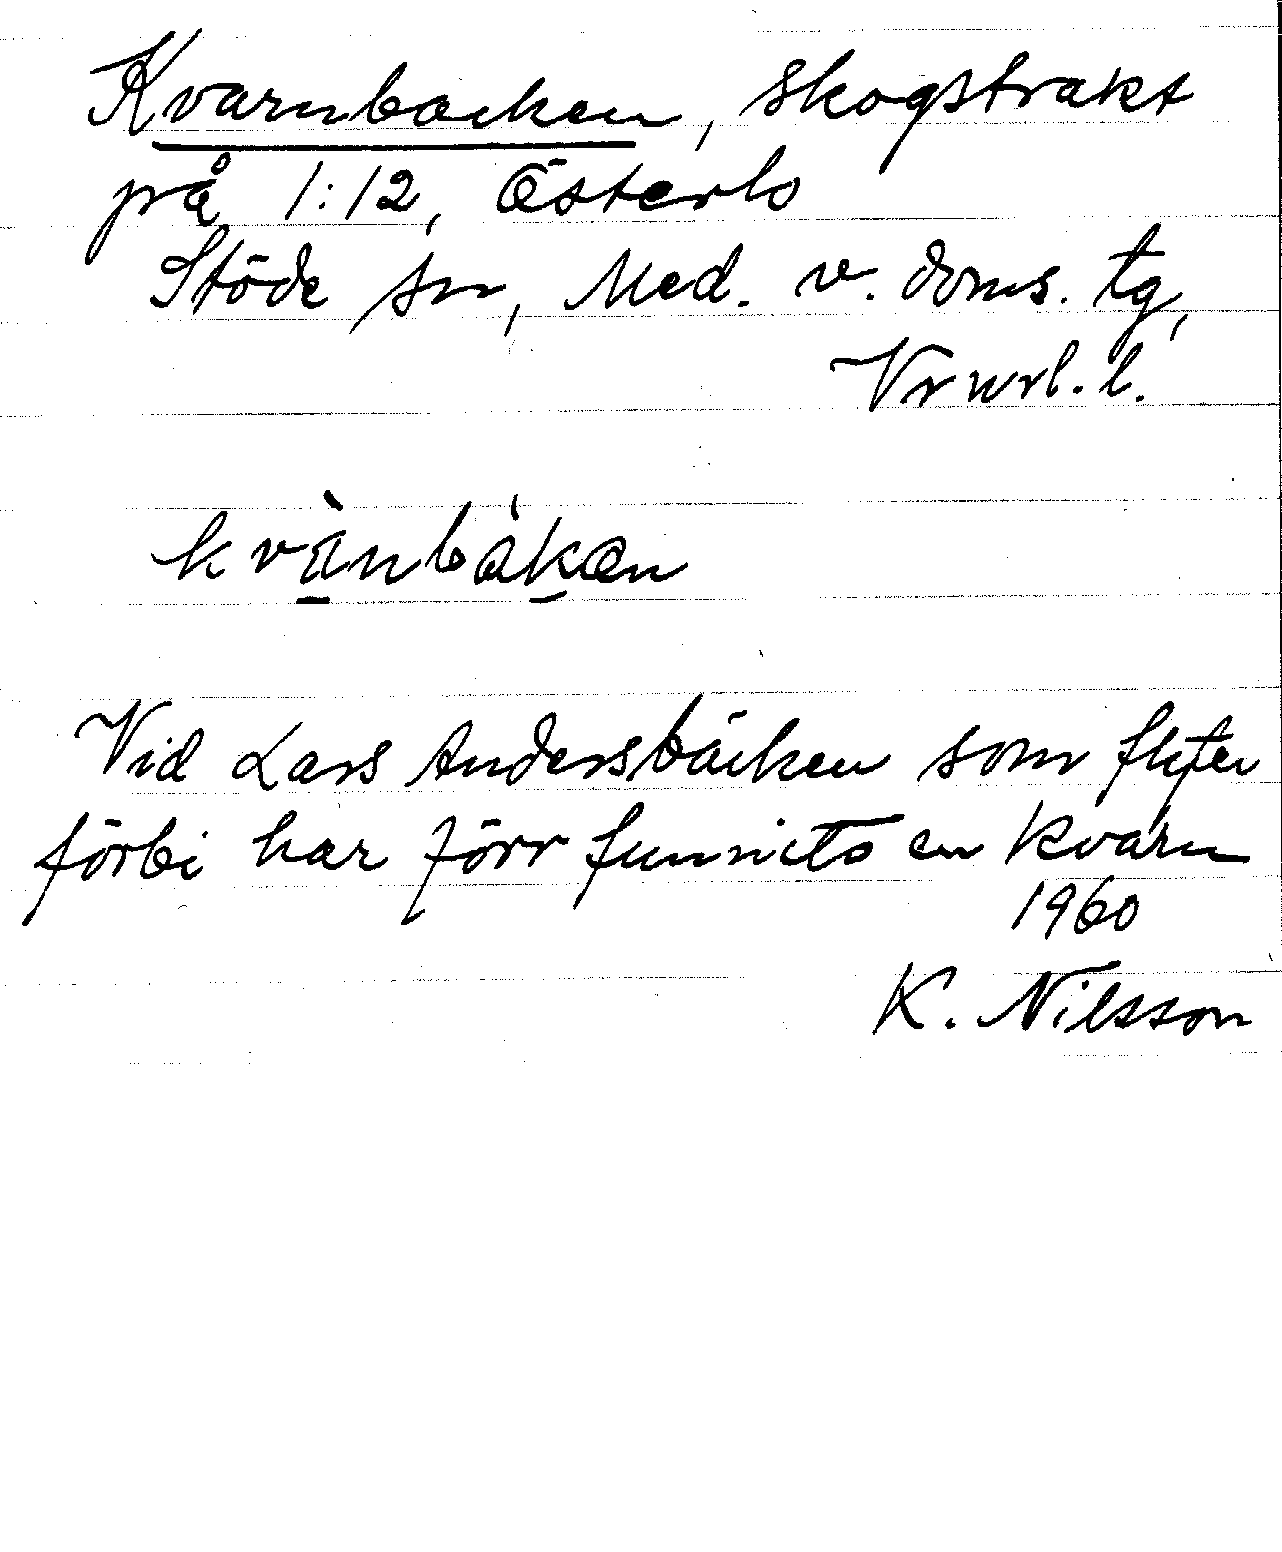 Kvarnbacken, skogstrakt
på 1:12, Österlo
Stöde sn, Med. v. doms. tg,
Vrnrl. l.
kvànbákæn
Vid Lars Andersbäcken som flyter
förbi har förr funnits en kvarn
1960
K. Nilsson